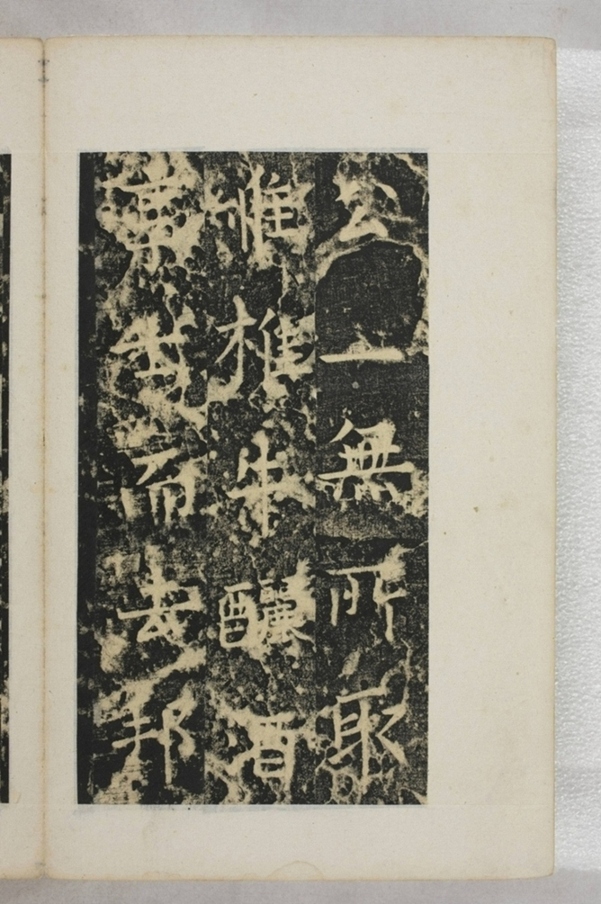 公一無所取
惟椎牛釃酒
而去邦